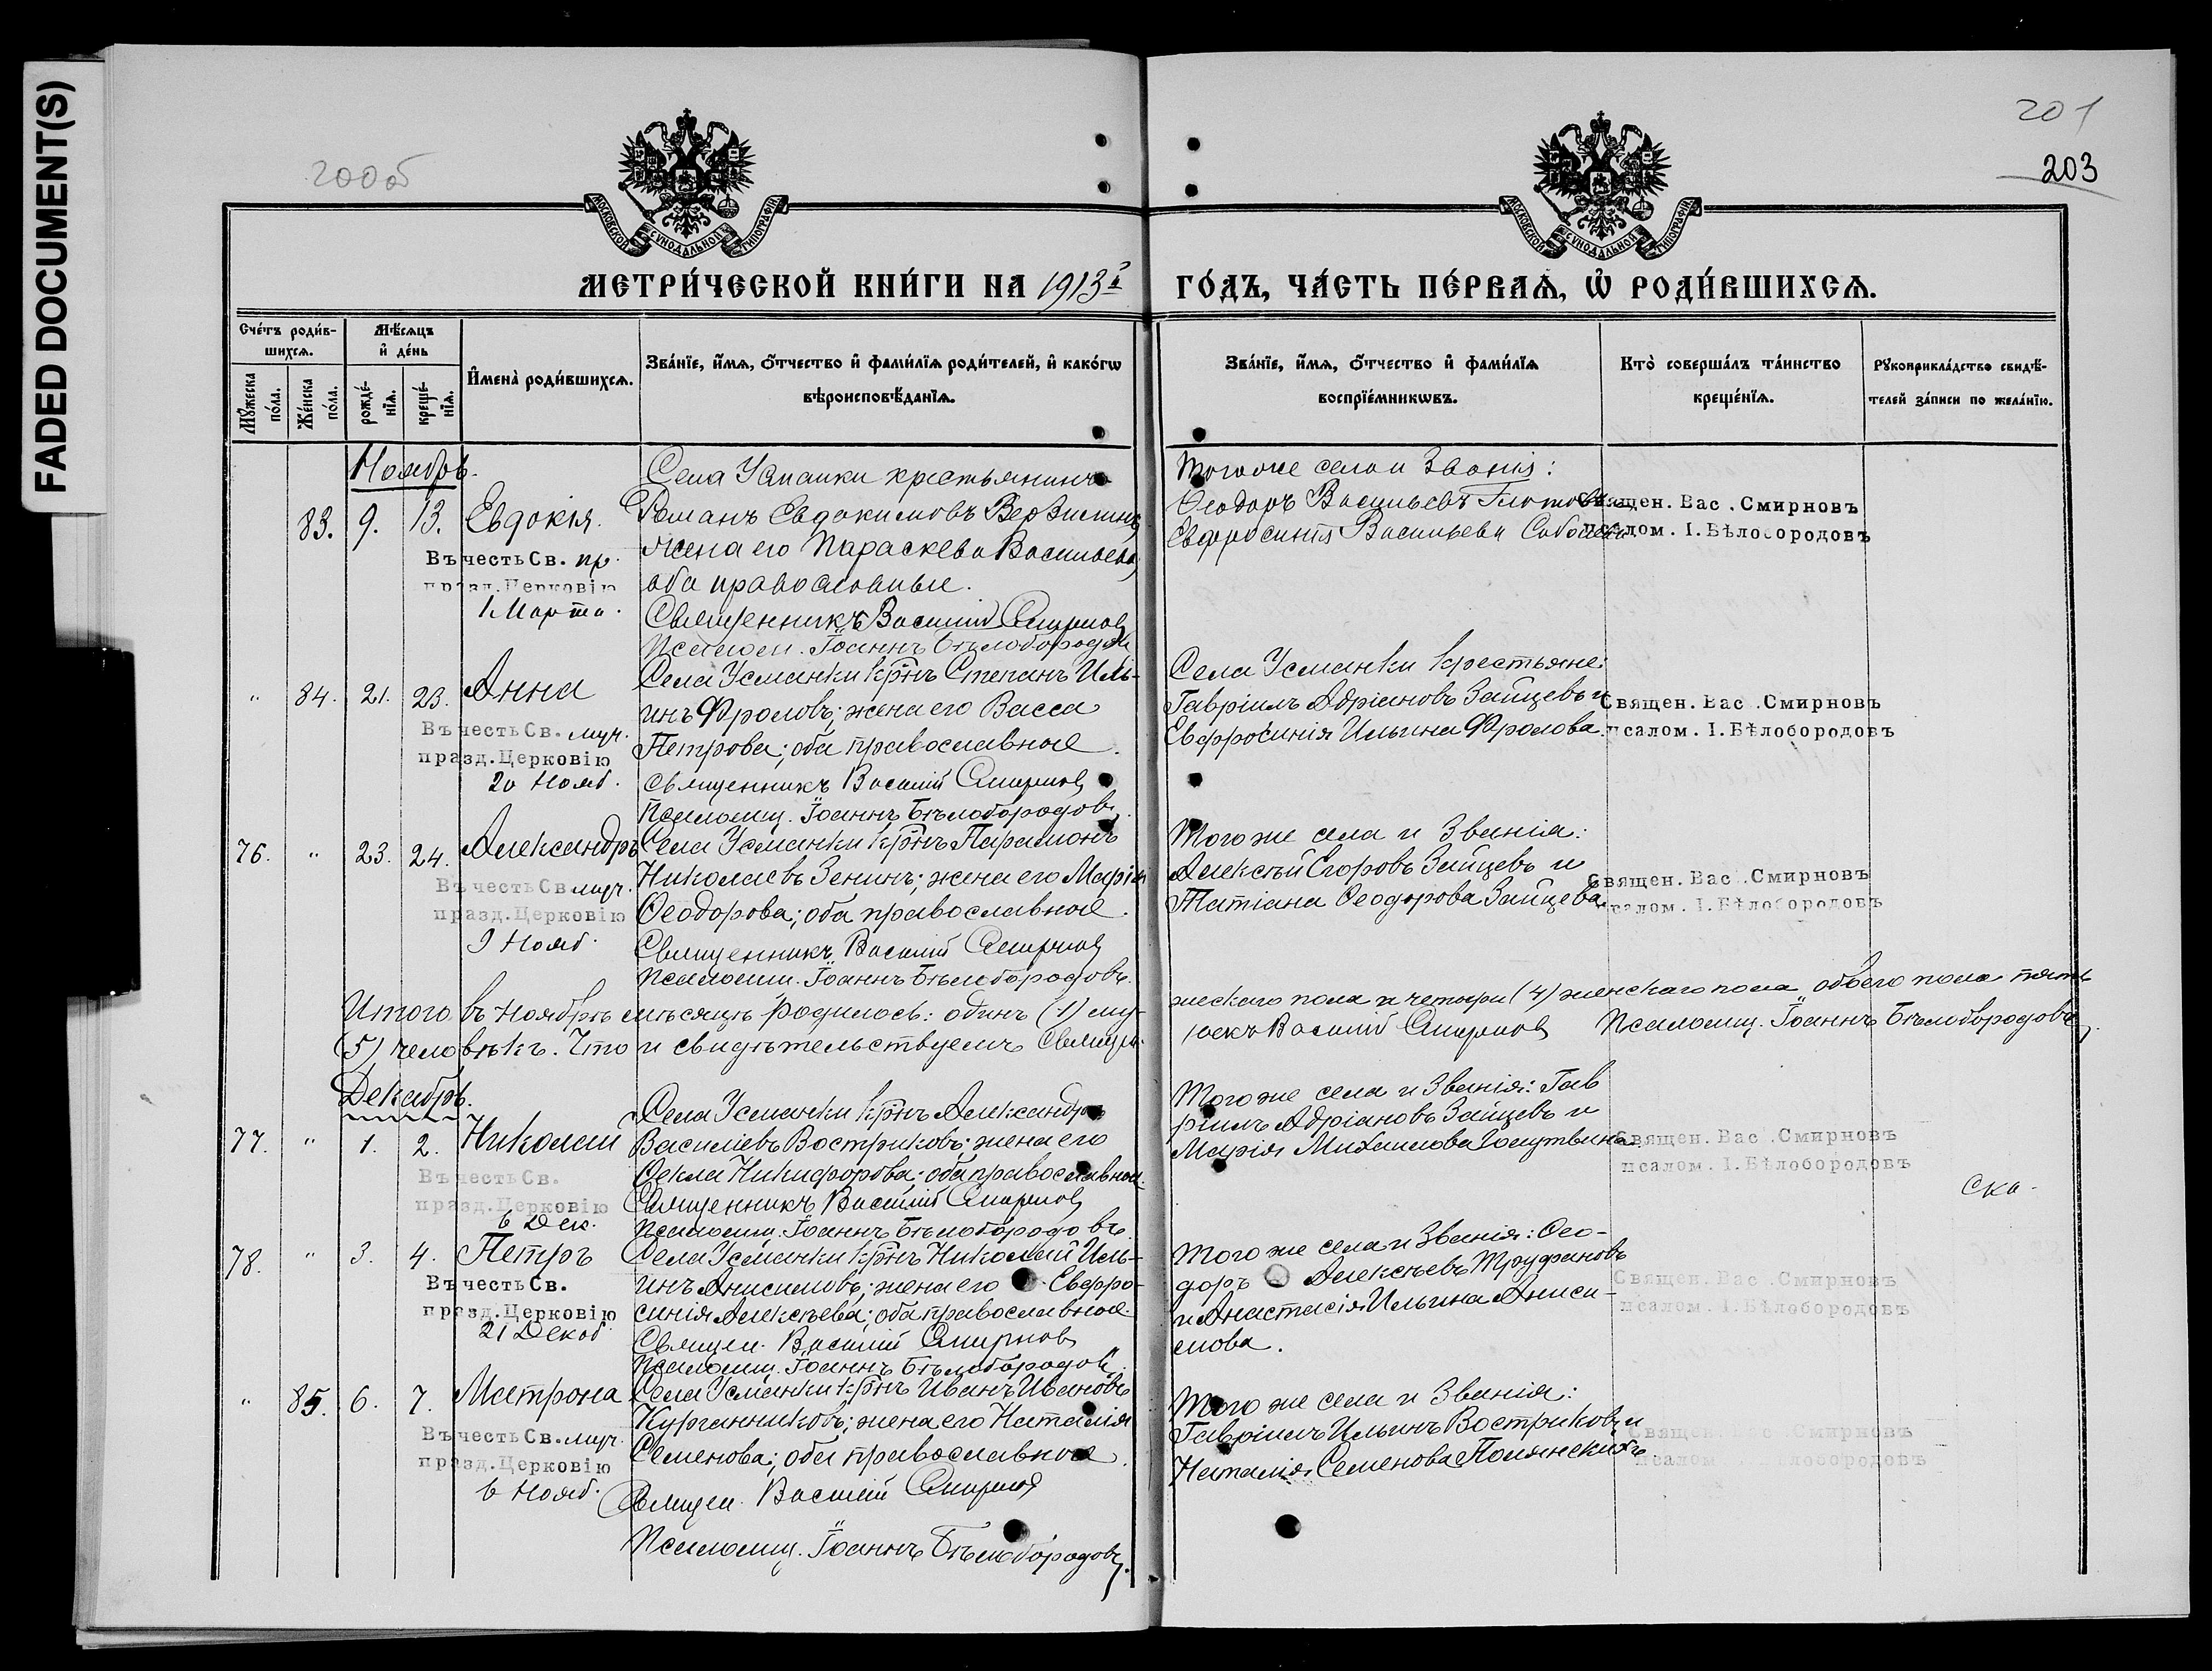 FADED DOCUMENT(S)
200об
201
203
МОСКОВСКОЙ СѴНОДАЛЬНОЙ ТИПОГРАФІИ
МОСКОВСКОЙ СѴНОДАЛЬНОЙ ТИПОГРАФІИ
МЕТРИ́ЧЕСКОЙ КНИ́ГИ НА 1913й ГО́ДЪ, ЧА́СТЬ ПЕ́РВАѦ, Ѽ РОДИ́ВШИХСѦ.
Сче́тъ роди́в-
шихсѧ.
Мꙋ́жеска
по́ла.
Же́нска
по́ла.
Мѣ́сѧцъ
и҆ де́нь
рожде́-
нїѧ.
креще́-
нїѧ.
И҆мена̀ роди́вшихсѧ.
Зва́нїе, и҆́мѧ, ѻ҆́тчество и҆ фами́лїѧ роди́телей, и҆ како́гѡ
вѣроисповѣ́данїѧ.
Зва́нїе, и҆́мѧ, ѻ҆́тчество и҆ фами́лїѧ
воспрїе́мникѡвъ.
Кто̀ соверша́лъ та́инство
креще́нїѧ.
Рꙋкоприкла́дство свидѣ́-
телей за́писи по жела́нїю.
Ноябрь.
83. 9. 13. Евдокія.
Въ честь Св. пр.
празд. Церковію
1 Марта.
Села Усманки крестьянинъ
Романъ Евдокимовъ
жена его Параскева Васильева,
оба православные.
Священникъ Василий Смирновъ
Псаломщ. Іоаннъ Бѣлобородовъ
Того же села и званія:
Ѳеодоръ Васильевъ
Евфросинія Васильева
Священ. Вас. Смирновъ
псалом. І. Бѣлобородовъ
" 84. 21. 23. Анна
Въ честь Св. муч.
празд. Церковію
20 Нояб.
Села Усманки кр̃нъ Степанъ Иль-
инъ Фроловъ; жена его Васса
Петрова; оба православные.
Священникъ Василий Смирновъ
Псаломщ. Іоаннъ Бѣлобородовъ.
Села Усманки крестьяне:
Гавріилъ Адріановъ Зайцевъ и
Евфросинія Ильина Фролова.
Священ. Вас. Смирновъ
псалом. І. Бѣлобородовъ
76. " 23. 24. Александръ
Въ честь Св муч.
празд. Церковію
9 Нояб.
Села Усманки кр̃нъ Парамонъ
Николаевъ Зенинъ; жена его Марія
Ѳеодорова; оба православные.
Священникъ Василий Смирновъ
Псаломщ. Іоаннъ Бѣлобородовъ.
Того же села и званія:
Алексѣй Егоровъ Зайцевъ и
Татіана Ѳеодорова Зайцева.
Священ. Вас. Смирновъ
псалом. І. Бѣлобородовъ
Итого въ Ноябрѣ мѣсяцѣ родилось: одинъ (1) му-
жескаго пола и четыри (4) женскаго пола, обоего пола пять
(5) человѣкъ. Что и свидѣтельствуемъ Священ-
никъ Василій Смирновъ Псаломщ. Іоаннъ Бѣлобородовъ.
Декабрь.
77. " 1. 2. Николай
Въ честь Св.
празд. Церковію
6 Дек.
Села Усманки кр̃нъ Александръ
Василіевъ Востриковъ; жена его
Ѳекла Никифорова; оба православные.
Священникъ Василий Смирновъ
Псаломщ. Іоаннъ Бѣлобородовъ.
Того же села и званія: Гав
ріилъ Адріановъ Зайцевъ и
Марія Михаилова Голутвина.
Священ. Вас. Смирновъ
псалом. І. Бѣлобородовъ
ска-
78. " 3. 4. Петръ
Въ честь Св.
празд. Церковію
21 Декаб.
Села Усманки кр̃нъ Николай Иль-
инъ Анисимовъ; жена его Евфро-
синія Алексѣева; оба православные.
Священ. Василий Смирновъ
Псаломщ. Іоаннъ Бѣлобородовъ.
Того же села и званія: Ѳео-
доръ Алексѣевъ Труфановъ
и Анастасія Ильина Аниси-
мова.
Священ. Вас. Смирновъ
псалом. І. Бѣлобородовъ
" 85. 6. 7. Матрона
Въ честь Св. муч.
празд. Церковію
6 Нояб.
Села Усманки кр̃нъ Иванъ Ивановъ
Курганниковъ; жена его Наталія
Семенова; оба православные.
Священ. Василий Смирновъ
Псаломщ. Іоаннъ Бѣлобородовъ.
Того же села и званія:
Гавріилъ Ильинъ Востриковъ и
Наталія Семенова Полянскихъ.
Священ. Вас. Смирновъ
псалом. І. Бѣлобородовъ